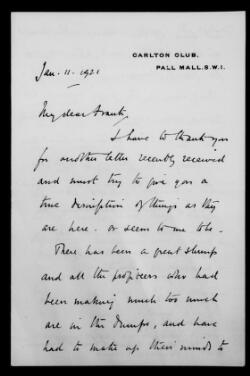 CARLTON CLUB,
PALL MALL, S.W.1.
Jan. 11. 1921
My dear Frank,
I have to thank you
for another letter recently received
and must try to give you a
true description of things as they
are here. or seem to me to be.
There has been a great slump
and all the profiteers who had
been making much too much
are in the dumps, and have
had to make up their minds to